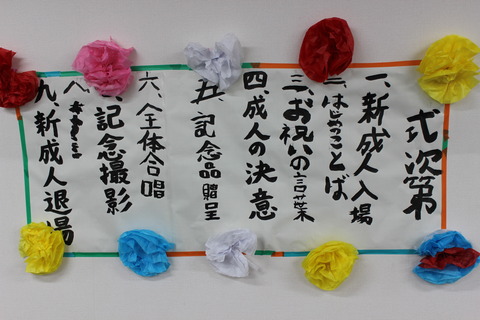 式次第
一、新成人入場
二、はじめのことば
三、お祝いの言葉
四、成人の決意
五、記念品贈呈
六、全体合唱
、記念撮影
八、
九、新成人退場